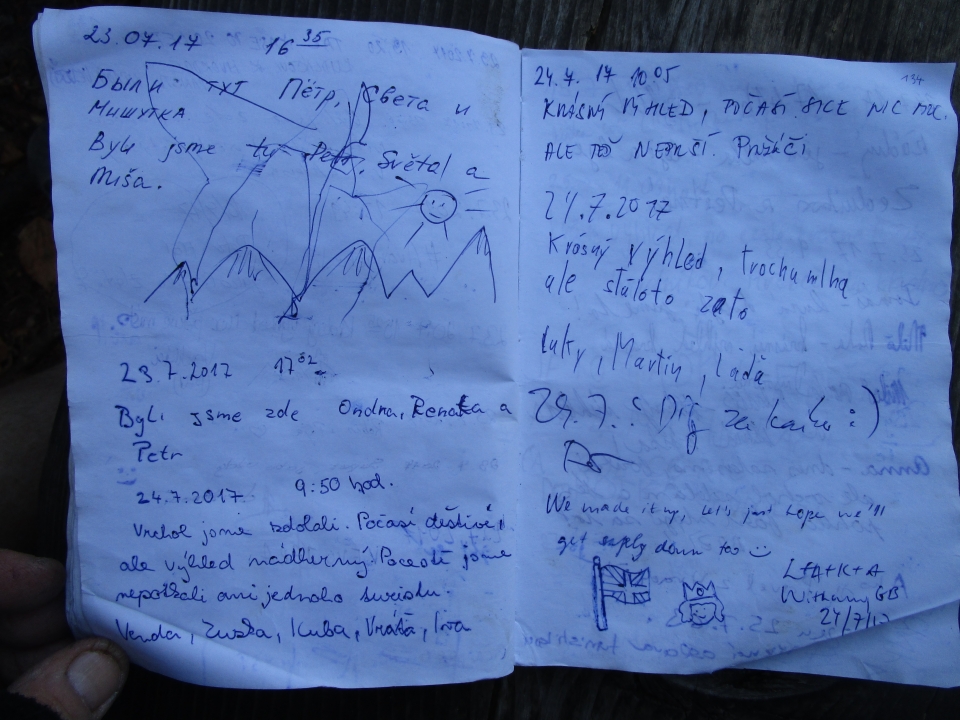 23.07.17 16 35
Были тут Пётр, Света и
Мишутка
Byli jsme tu Petr, Světal a
Míša.
23.7.2017 17
Byli jsme zde Ondra, Renata a
Petr
24.7.2017 9:50 hod.
Vrchol jsme zdolali. Počasí deštivé,
ale výhled nádherný. Pocestě jsme
nepotkali ani jednoho
Venda, Zuzka, Kuba, Vráťa, Iva
24.7. 17 10 05
134
KRÁSNÝ VÝHLED, POČASÍ SICE NIC MC.
ALE TOŽ NEPRŠÍ.
24.7.2017
Krásný výhled, trochu mlha
ale stáloto zato
Luky, Martin, Láďa
: Díj za kešu :)
We made it up, let's just hope we'll
get down too
L+A+K+A
GB
24/7/17